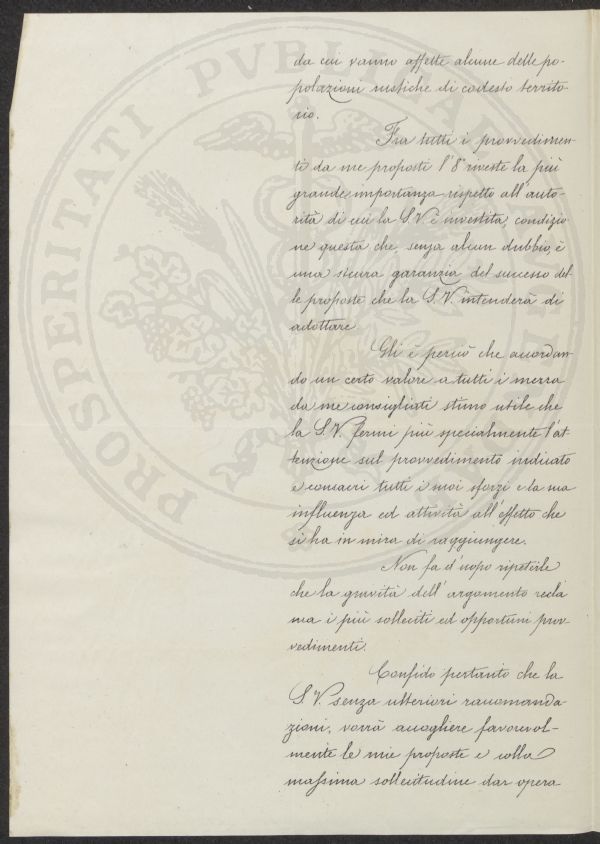 da cui vanno affette alcune delle po-
polazioni rustiche di codesto territo-
rio.
Fra tutti i provvedimen-
ti da me proposti l'8° riveste la più
grande importanza rispetto all'auto-
rità di cui la S.V. è investita, condizio
ne questa che, senza alcun dubbio, è
una sicura garanzia del successo del-
le proposte che la S.V. intenderà di
adottare
Gli è perciò che accordan-
do un certo valore a tutti i mezzi
da me consigliati stimo utile che
la S.V. fermi più specialmente l'at-
tenzione sul provvedimento indicato
e consacri tutti i suoi sforzi e la sua
influenza ed attività all'effetto che
si ha in mira di raggiungere.
Non fa d'uopo ripeterle
che la gravità dell'argomento recla
ma i più solleciti ed opportuni prov-
vedimenti.
Confido pertanto che la
S.V. senza ulteriori raccomanda-
zioni, vorrà accogliere favorevol-
mente le mie proposte e colla
massima sollecitudine dar opera
PROSPERITATI PVBLICAE